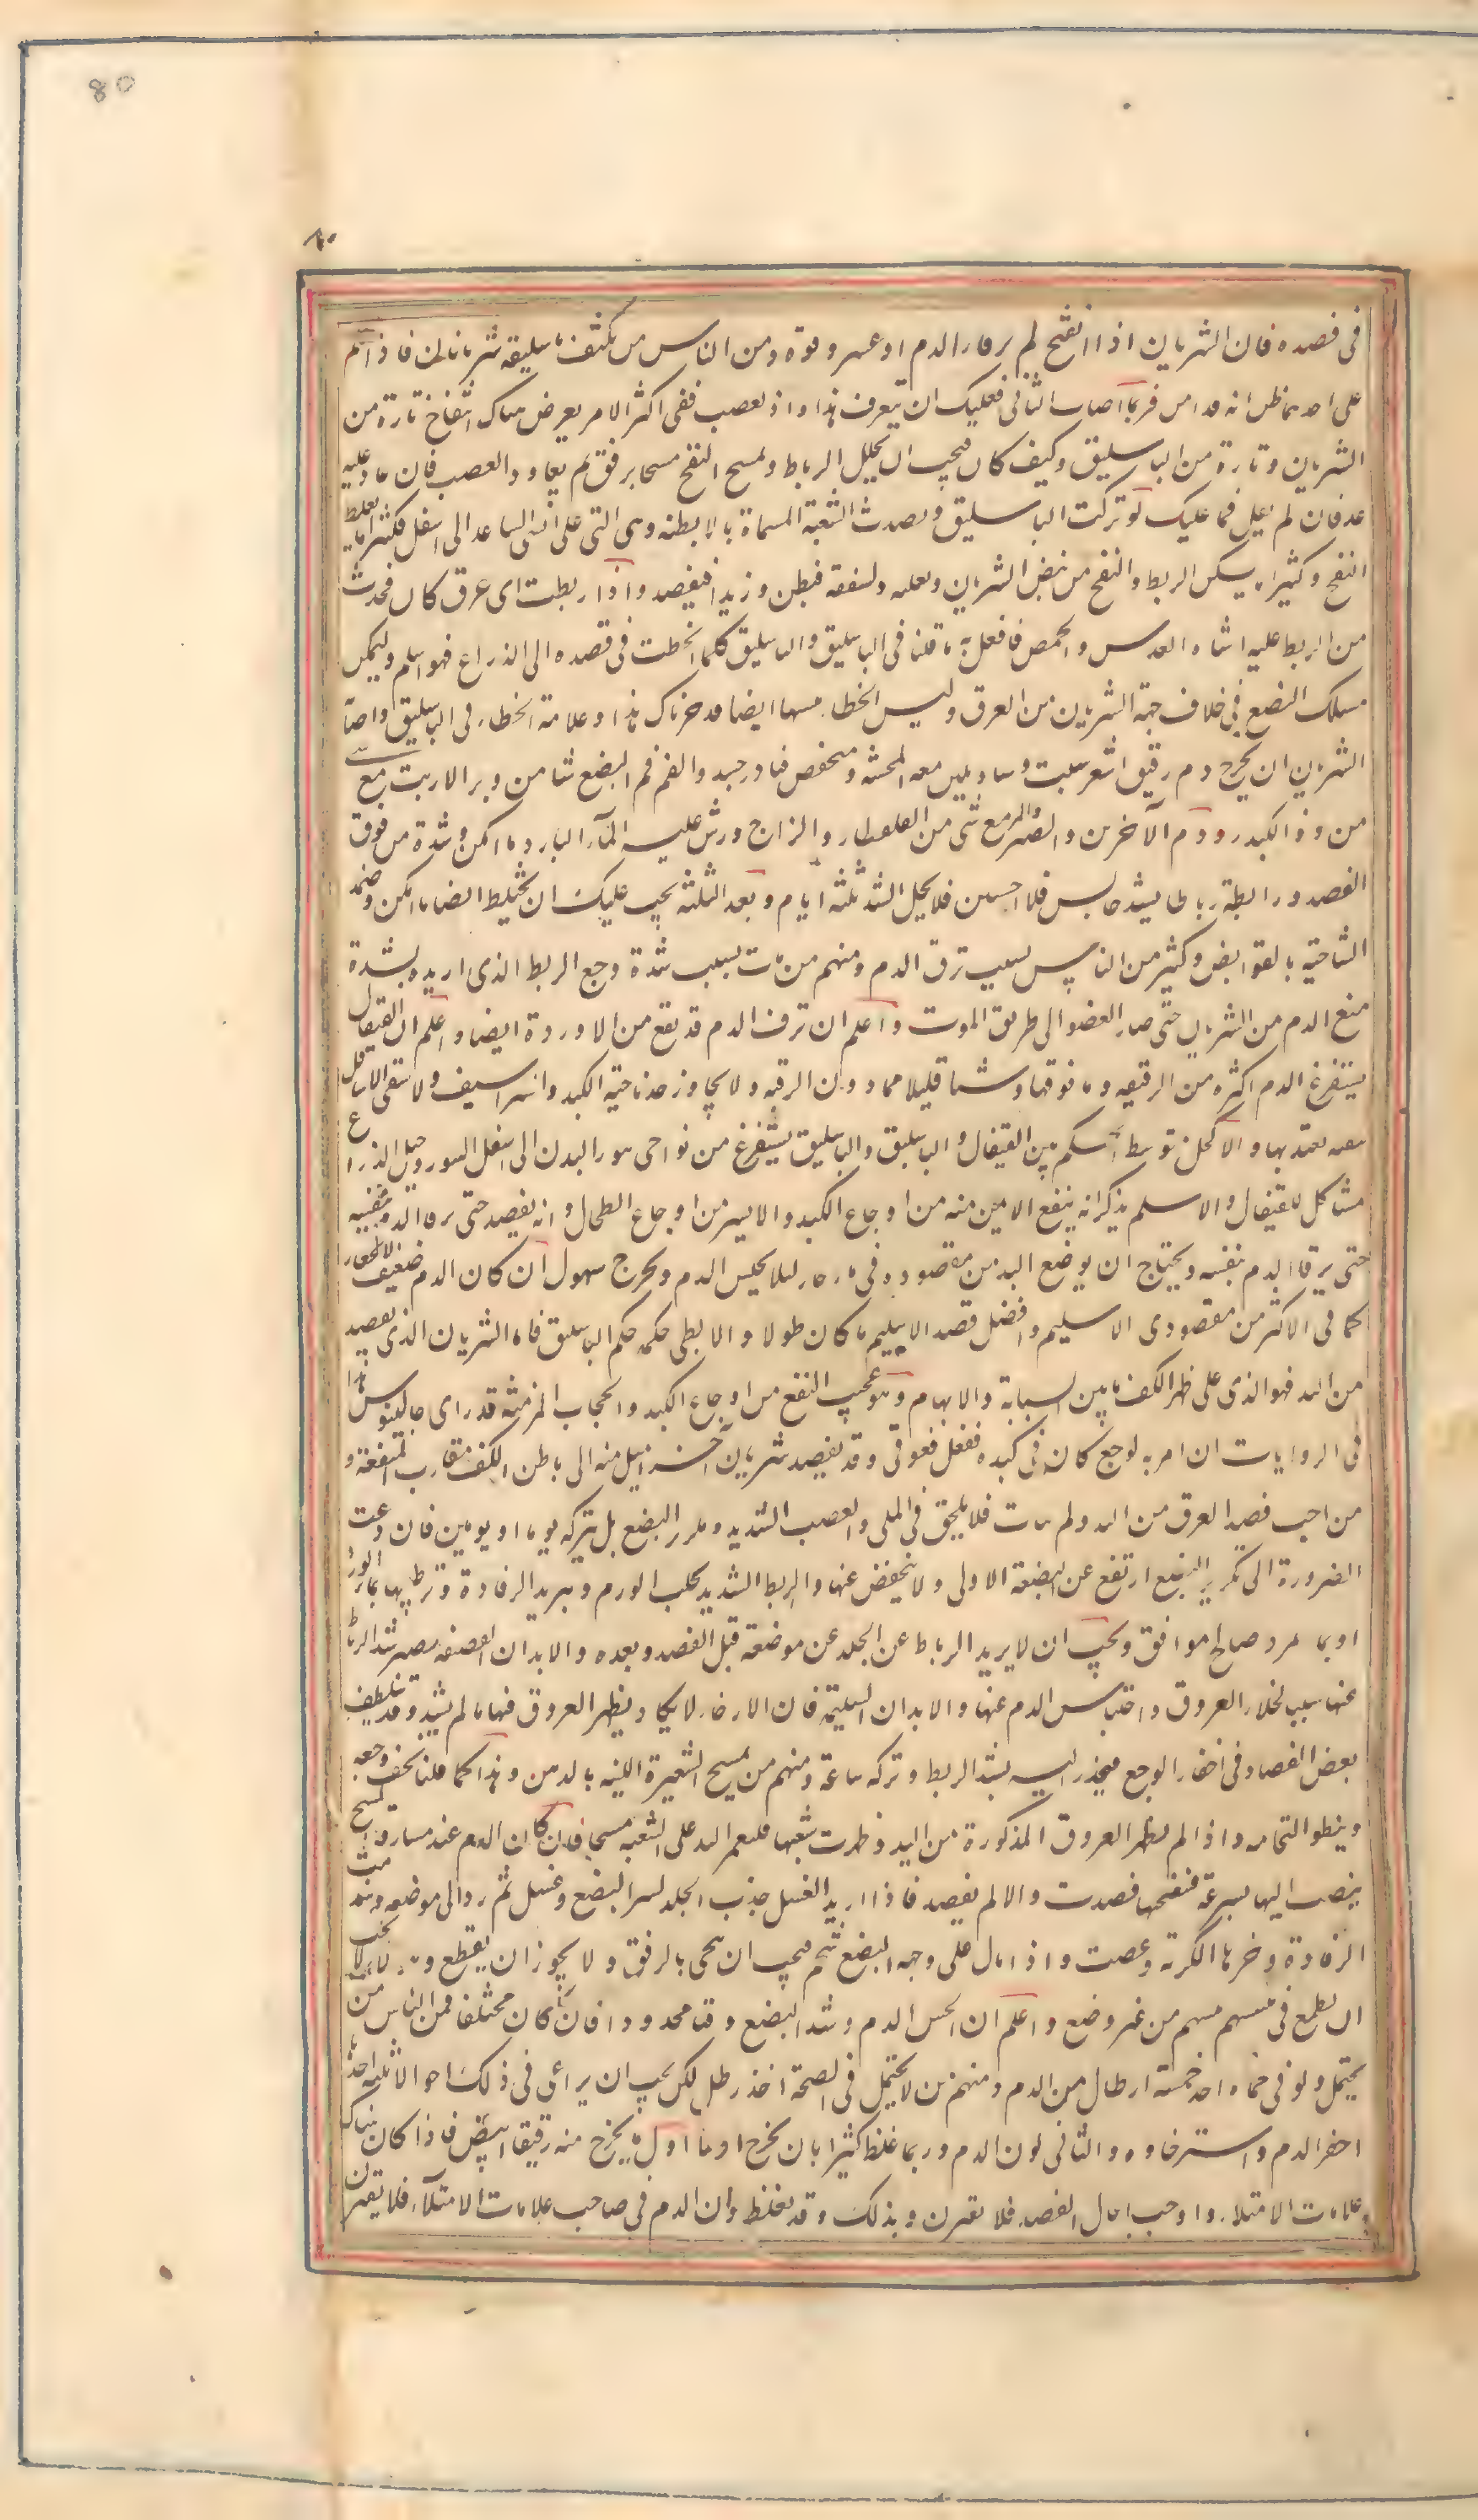 80
٨٠
فى فصده فان الشريان اذا انفتح لم يرقاء الدم او عسر رقوه ومن الناس من يكتنف باسليقه شريانان فاذا اعلم
على احدهما ظن انه قد امن فربما اصاب الثانى فعليك ان تتعرف هذا واذا تعصب ففى اكثر الامر يعرض هناك انتفاخ تارة من
الشريان وتارة من الباسليق وكيف كان فيجب ان يحلل الرباط ويمسح النفخ مسحا برفق ثم يعاود العصب فان عاد عليه
عد فان لم يعل فما عليك لو تركت الباسليق وفصدت الشعبة المسماة بالابطنه وهى التى على انسى الساعد الى اسفل فكثيرا ما يغلط
النفخ وكثيرا ما يسكن الربط والنفخ من نبض الشريان ويعليه ولسفقه فيظن وريدا فيفصد واذا ربطت اى عرق كان فحدث
من الربط عليه اشباه العدس والحمص فافعل به ما قلنا فى الباسليق والباسليق كلما انحطت فى فصده الى الذراع فهو اسلم وليكن
مسلك البضع فى خلاف جهة الشريان من العرق وليس الخطاء منها ايضا قد خزناك هذا وعلامة الخطاء فى الباسليق واصابة
الشريان ان يخرج دم رقيق اشعر يثب وثبا ويلين معه المجسة وينخفض فبادر حينئذ والقم فم البضع شيئا من وبر الارنب مع
من دقاق الكندر ودم الاخوين والصبر والمر مع شئ من القلقطار والزاج ورش عليه الماء البارد ما امكن وشدة من فوق
الفصد وربطه رباطا بشد حابس فلا احتبس فلا يحل الشد ثلثة ايام وبعد الثلثة يجب عليك ان تحتاط ايضا ما امكن وضمد
الناحية بالقوابض وكثير من الناس بسبب نزف الدم ومنهم من مات بسبب شدة وجع الربط الذى اريد بشدة
منع الدم من الشريان حتى صار العضو الى طريق الموت واعلم ان نزف الدم قد يقع من الاوردة ايضا واعلم ان القيفال
يستفرغ الدم اكثره من الرقبه وما فوقها وشيئا قليلا مما دون الرقبه ولا يجاوز حد ناحية الكبد والشراسيف ولا تنقى الاسافل
تنقيه يعتد بها والاكحل متوسط الحكم بين القيفال والباسليق والباسليق يستفرغ من نواحى تنور البدن الى اسفل التنور وحبل الذراع
مشاكل للقيفال والاسيلم يذكر انه ينفع الايمن منه من اوجاع الكبد والايسر من اوجاع الطحال وانه يفصد حتى يرقا الدم بنفسه
حتى يرقا الدم بنفسه ويحتاج ان يوضع اليد من مفصوده فى ماء حار لئلا يحبس الدم ويخرج بسهولة ان كان الدم ضعيف الانحدار
كما فى الاكثر من مفصودى الاسيلم وافضل فصد الاسيلم ما كان طولا والابطى حكمه حكم الباسليق فاما الشريان الذى يفصد
من اليد فهو الذى على ظهر الكف ما بين السبابة والابهام وهو عجيب النفع من اوجاع الكبد والحجاب المزمنة قد راى جالينوس هذا
فى الروايات ان امر به لوجع كان فى كبده ففعل فعوفى وقد يفصد شريان آخر اميل منه الى باطن الكف مقارب المنفعة و
من احب فصد العرق من اليد ولم يتات فلا يلحق فى اللى والعصب الشديد وتكرر البضع بل يتركه يوما او يومين فان دعت
الضرورة الى تكرير البضع ارتفع عن البضعة الاولى ولا ينخفض عنها والربط الشديد يجلب الورم وتبريد الرفادة وترطيبها بماء الورد
او بماء مبرد صالح موافق ويجب ان لا يزيد الرباط عن الجلد عن موضعه قبل الفصد وبعده والابدان القضيفه يصير شد الرباط
عنها سببا لخلاء العروق واحتباس الدم عنها والابدان السمينة فان الارخاء لا يكاد يظهر العروق فيها ما لم يشد وقد يتلطف
بعض الفصاد فى اخفاء الوجع فيخدر اليد بشد الربط وتركه ساعة ومنهم من يمسح الشعيرة اللينه بالدهن وهذا كما قلنا يخف وجعه
ويبطؤ التحامه واذا لم يظهر العروق المذكورة من اليد وظهرت شعبها فليغمر اليد على الشعبة مسحا فان كان الدم عند مفارقة المسح
ينصب اليها بسرعة فينفخها فصدت والا لم يفصد فاذا اريد الغسل جذب الجلد ليستر البضع وغسل ثم رد الى موضعه وهندمت
الرفادة وخيرها الكرية وعصبت واذا مال على وجه البضع شحم فيجب ان ينحى بالرفق ولا يجوز ان يقطع وهولاء لا يجب
ان يطمع فى تثنيتهم من غير وضع واعلم ان لحبس الدم وشد البضع وقتا محدودا فان كان مختلفا فمن الناس من
يحتمل ولو فى حماه اخذ خمسة ارطال من الدم ومنهم من لا يحتمل فى الصحة اخذ رطل لكن يجب ان يراعى فى ذلك احوالا ثلثه احدها
احفز الدم واسترخاؤه والثانى لون الدم وربما غلط كثيرا بان يخرج اولا ما يخرج منه رقيقا ابيض فاذا كان هناك
علامات الامتلاء واوجب الحال الفصد فلا يغترن بذلك وقد يغلظ لون الدم فى صاحب علامات الامتلاء فلا يغترن